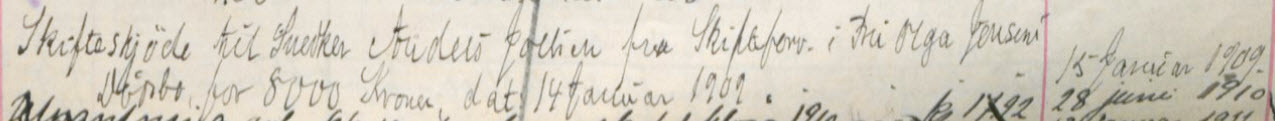 Skifteskjöde til Snedker Anders Jollsen fra Skifteforv. i Fru Olga Jensens
Dödsbo, for 8000 Kroner, dat. 14 Januar 1909.
15 Januar 1909.
28 juni 1910